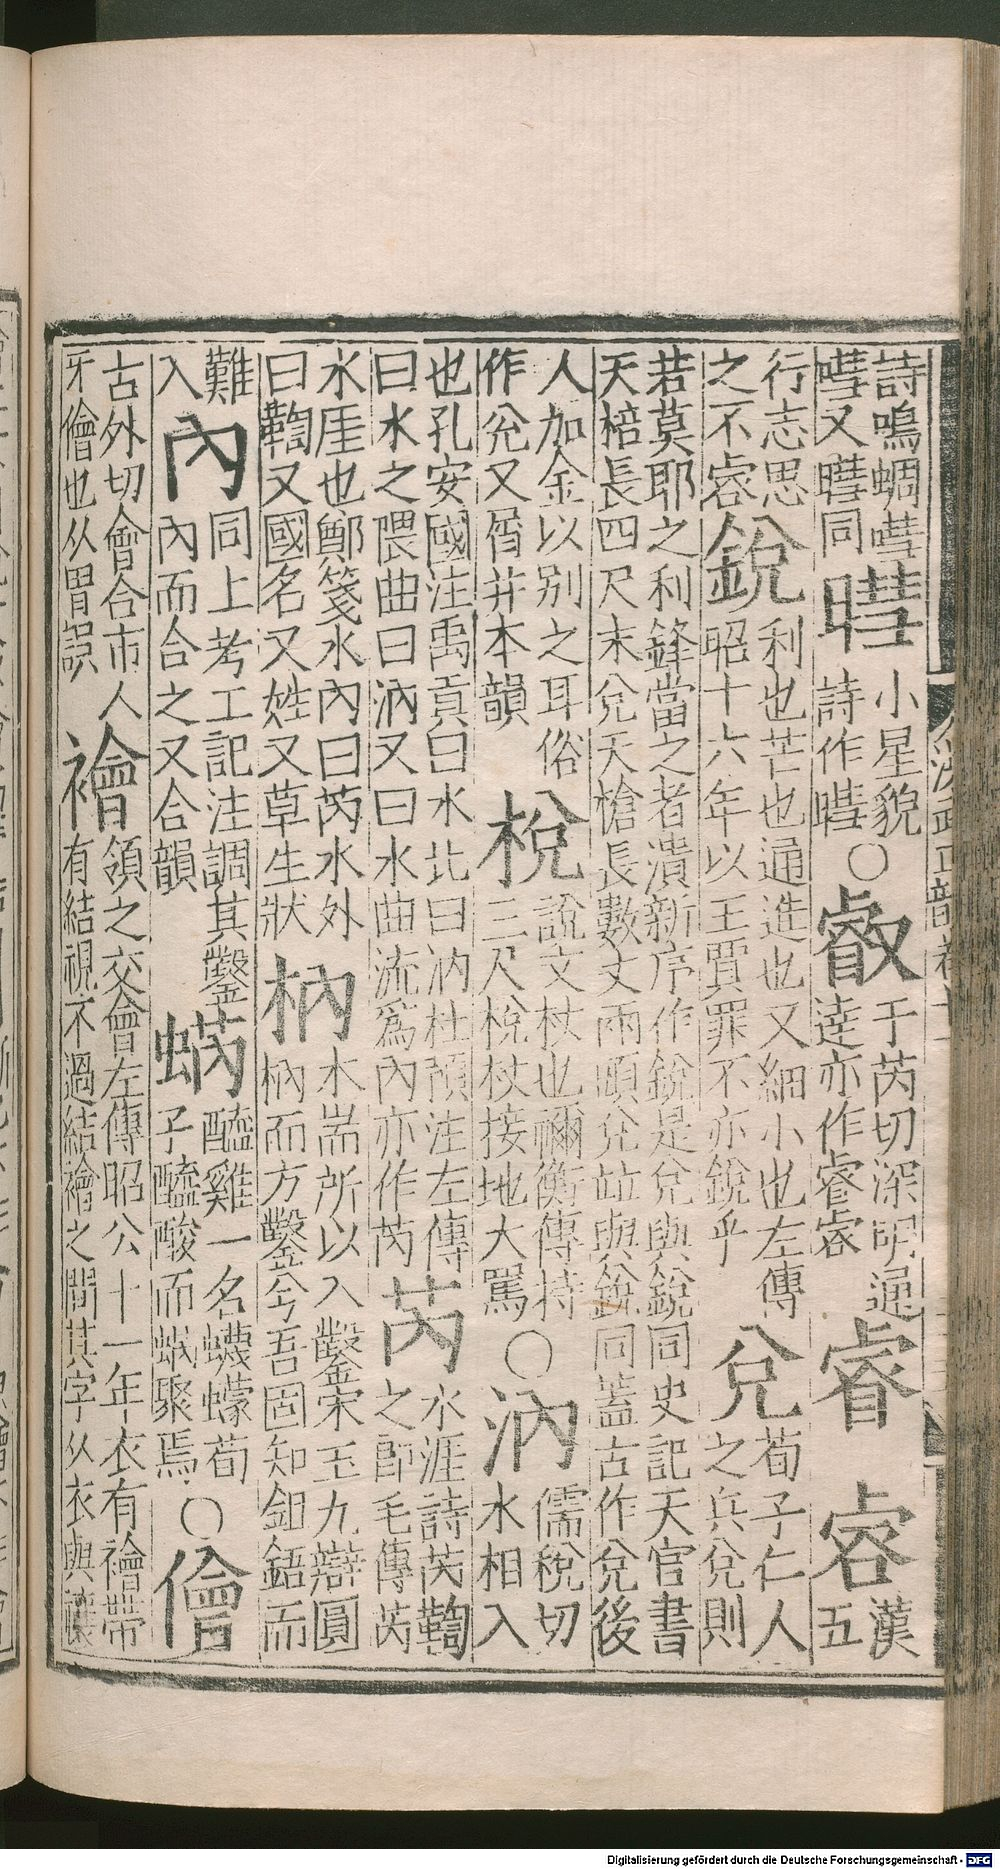 詩鳴蜩嘒
嘒又暳同
暳
小星貌
詩作嘒
○
叡
于芮切深明通
達亦作睿㕡
睿
㕡
漢
五
行志思
之不㕡
銳
利也芒也通造也又細小也左傳
昭十六年以王賈罪不亦銳乎
兌
荀子仁人
之兵兌則
若莫耶之利鋒當之者潰新序作銳是兌與銳同史記天官書
天棓長四尺末兌天槍長數丈兩頭兌竝與銳同蓋古作兌後
人加金以別之耳俗
作兊又屑并本韻
梲
說文杖也禰衡傳持
三尺梲杖接地大罵
○
汭
儒稅切
水相入
也孔安國注禹貢曰水北曰汭杜預注左傳
曰水之隈曲曰汭又曰水曲流爲內亦作芮
芮
水涯詩芮鞫
之卽毛傳芮
水厓也鄭箋水內曰芮水外
曰鞫又國名又姓又草生狀
枘
木耑所以入鑿宋玉九辯圓
枘而方鑿兮吾固知鉏鋙而
難
入
內
同上考工記注調其鑿
內而合之又合韻
蜹
醯雞一名蠛蠓荀
子醯酸而蜹聚焉
○
儈
古外切會合市人
牙儈也从胃誤
襘
領之交會左傳昭公十一年衣有襘帶
有結視不過結襘之閒其字从衣與禳
洪武正韻卷十
Digitalisierung gefördert durch die Deutsche Forschungsgemeinschaft - DFG